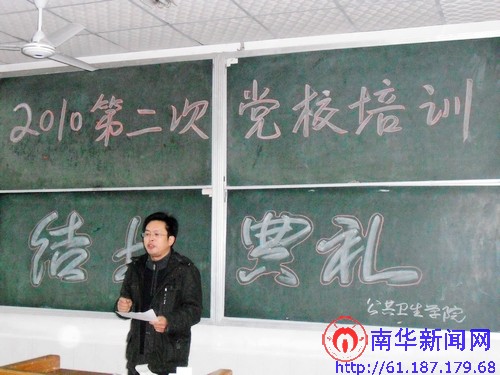 2010第二次党校培训
结 典礼
公共卫生学院
南华新闻网
http://61.187.179.68